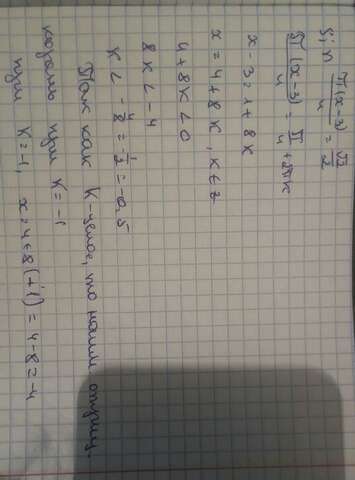 Sin π(x-3)/4 = √2/2
π(x-3)/4 = π/4 + 2πk
x-3 = 1+8k
x = 4+8k, k∈z
4+8k<0
8k<-4
k < -4/8 = -1/2 = -0,5
Так как k-целое, то наим. отриц.
корень при k=-1
при k=-1, x=4+8(-1)=4-8=-4